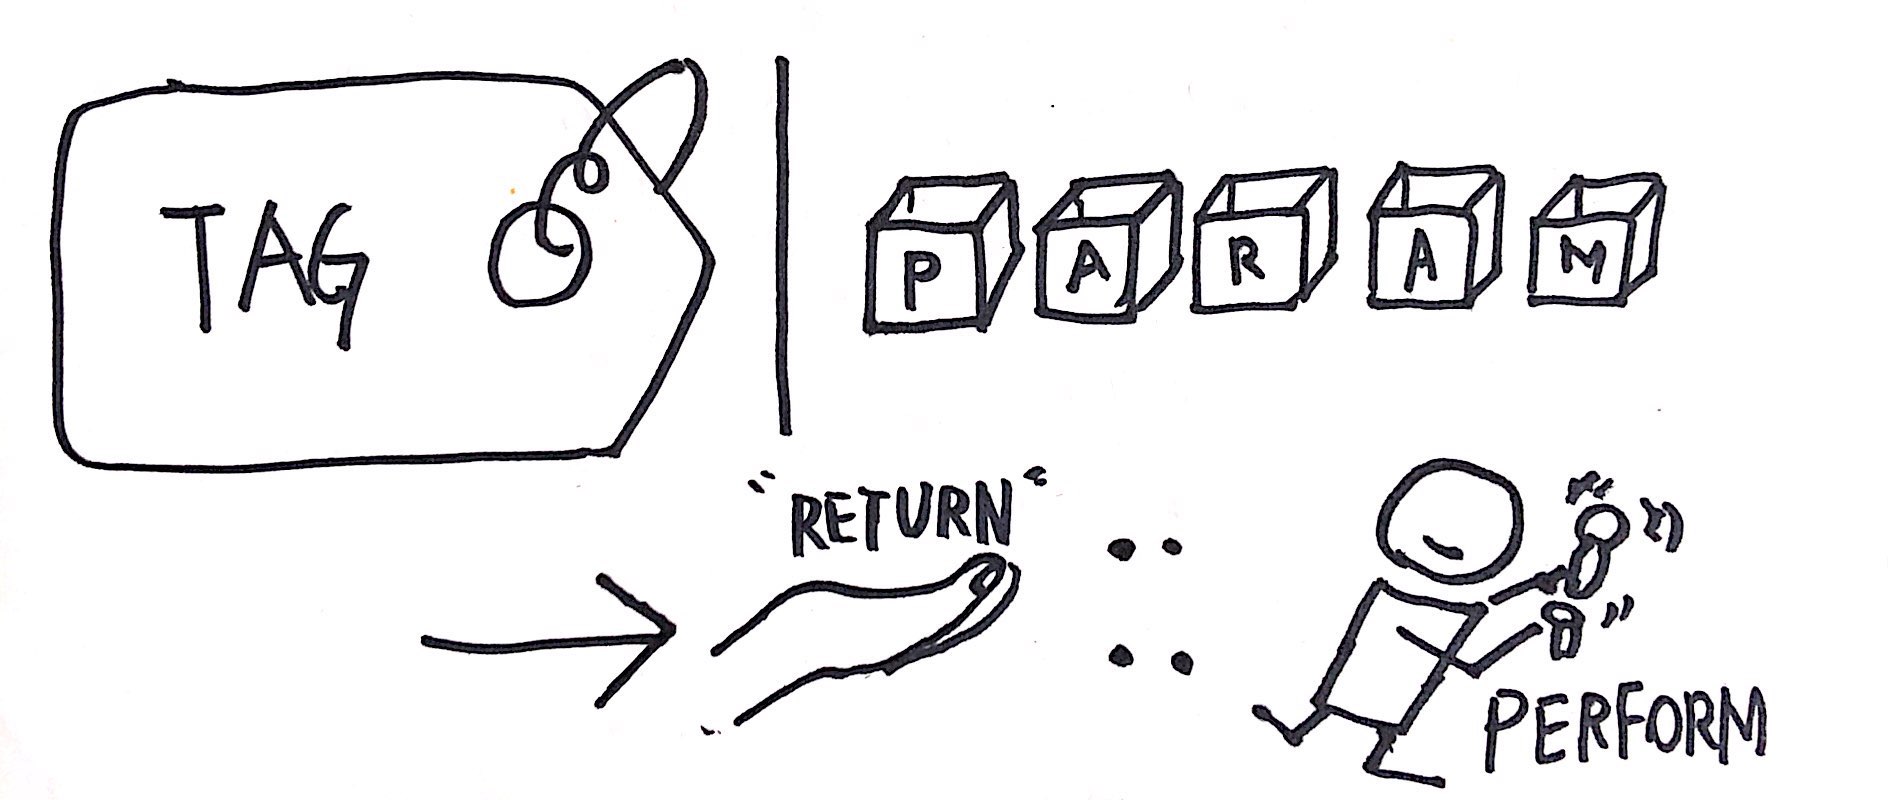 TAG | PARAM
→ "RETURN" :: PERFORM